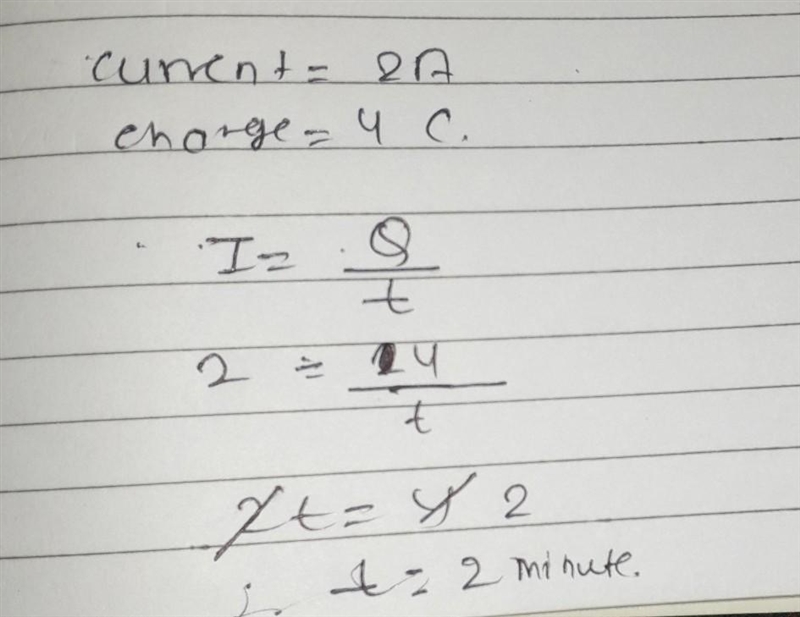 current = 2A
charge = 4 C.
I = Q
t
2 = 4
t
2t = 4 2
∴ t = 2 minute.